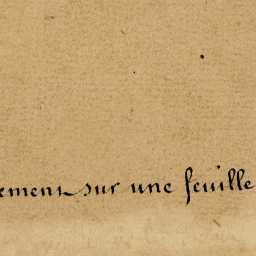 ement sur une feuille